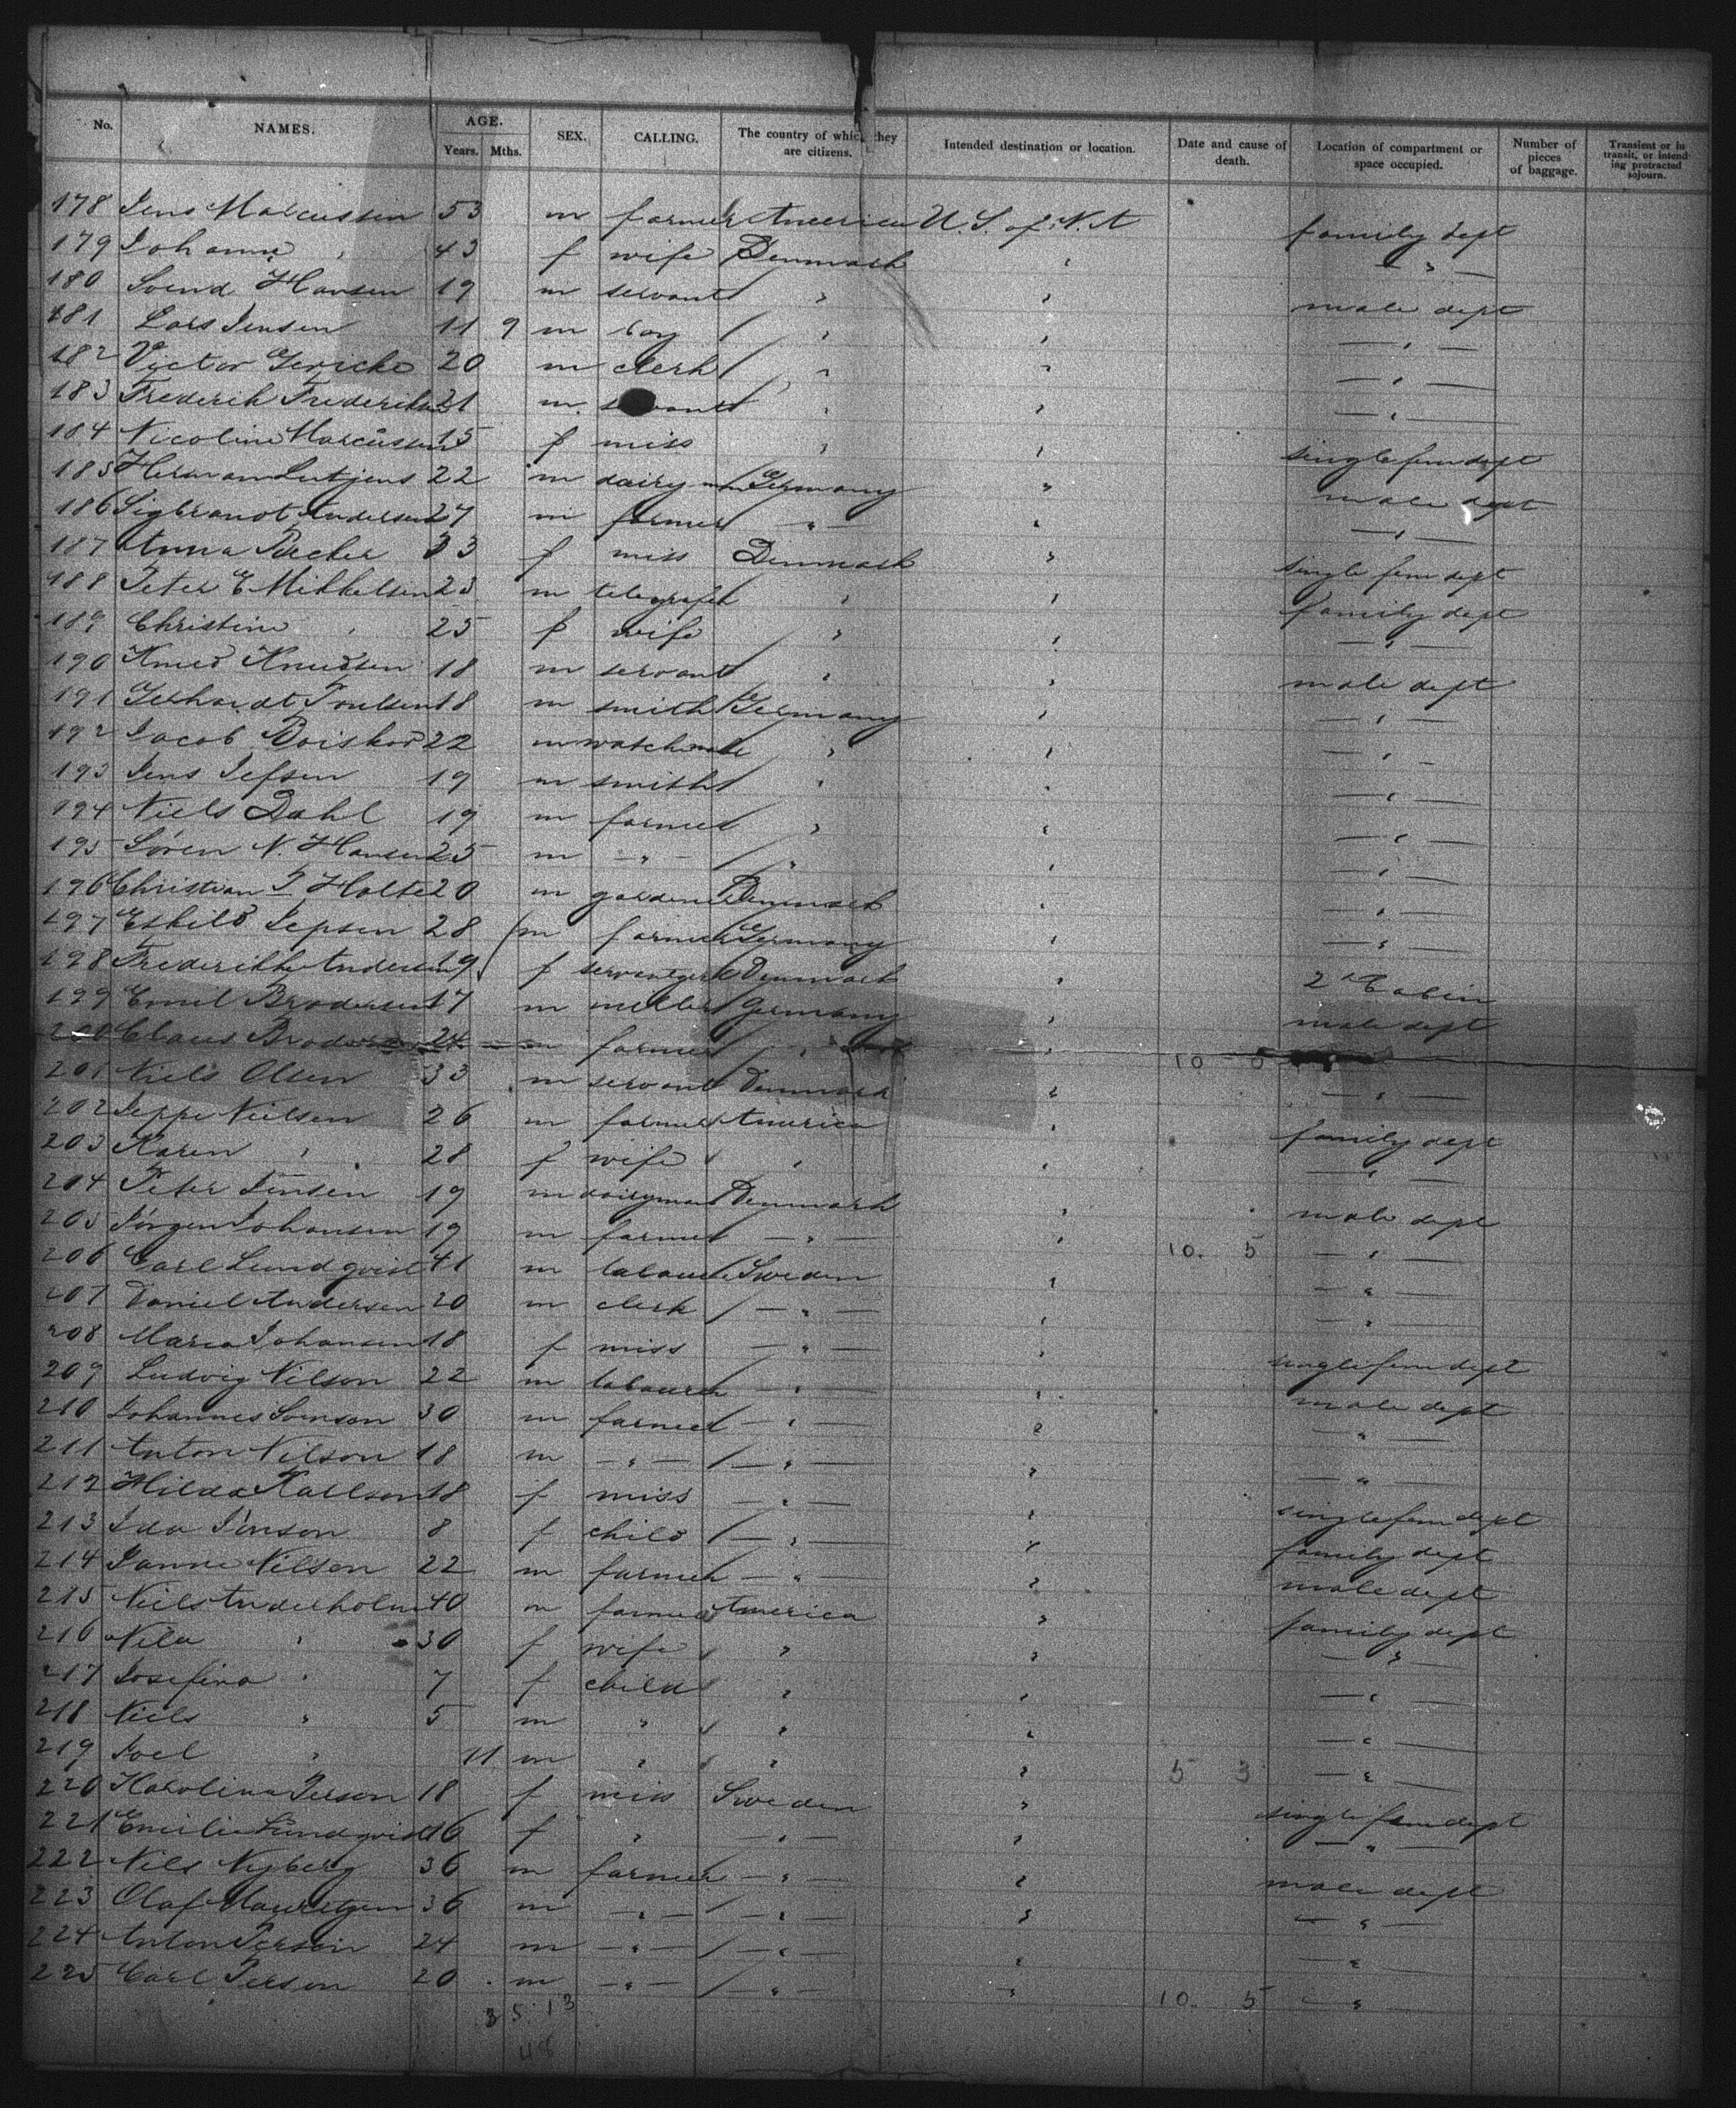 No. NAMES. AGE. Years. Mths. SEX. CALLING. The country of which they are citizens. Intended destination or location. Date and cause of death. Location of compartment or space occupied. Number of pieces of baggage. Transient or in transit, or intending protracted sojourn.
178 Jens Marcussen 53 m farmer America U. S. of N. A family dept
179 Johanne " 43 f wife Denmark " — " —
180 Svend Hansen 19 m servant " " male dept
181 Lars Jensen 11 9 m boy " " — " —
182 Victor Gericke 20 m clerk " " — " —
183 Frederik Frederiksen 21 m " " — " —
184 Nicoline Marcussen 15 f miss " " single fem dept
185 Herman Lutjens 22 m dairy man Germany " male dept
186 Sigbrandt Andersen 27 m farmer — " — " — " —
187 Anna Becker 33 f miss Denmark " single fem dept
188 Peter E Mikkelsen 23 m telegrafen " " family dept
189 Christine " 25 f wife " " — " —
190 Knud Knudsen 18 m servant " " male dept
191 Gerhardt Poulsen 18 m smith Germany " — " —
192 Jacob 22 m watchmak " " — " —
193 Jens Jefsen 19 m smith " " — " —
194 Niels Dahl 19 m farmer " " — " —
195 Sören N. Hansen 25 m — " — " " — " —
196 Christian P Holte 20 m gardener Denmark " — " —
197 Eskild Jepsen 28 m farmer Germany " — " —
198 Frederikke Andersen 19 f servantgirl Denmark " 2d Cabin
199 Emil Brodersen 17 m miller Germany " male dept
200 Claus Brodersen 24 m farmer " " 10
201 Niels Olsen 33 m servant Denmark " — " —
202 Jeppe Nielsen 26 m farmer America " family dept
203 Karen " 28 f wife " " — " —
204 Peter Jensen 19 m dairyman Denmark " male dept
205 Jørgen Johansen 19 m farmer — " — " 10. 5 — " —
206 Carl Lundqvist 41 m labourer Sweden " — " —
207 Daniel Andersen 20 m clerk — " — " — " —
208 Maria Johansen 18 f miss — " — " single fem dept
209 Ludvig Nilson 22 m labourer — " — " male dept
210 Johannes Svenson 30 m farmer — " — " — " —
211 Anton Nilson 18 m — " — — " — " — " —
212 Hilda Karlson 18 f miss — " — " single fem dept
213 Ida Jönson 8 f child — " — " family dept
214 Janne Nilson 22 m farmer — " — " male dept
215 Niels Anderholm 40 m farmer America " family dept
216 Nila " 30 f wife " " — " —
217 Josefina " 7 f child " " — " —
218 Niels " 5 m " " " — " —
219 Joel " 11 m " " " 5 3 — " —
220 Karolina Person 18 f miss Sweden " single fem dept
221 Emilie Lundqvist 16 f " — " — " — " —
222 Nils Nyberg 36 m farmer — " — " male dept
223 Olaf 36 m — " — — " — " — " —
224 Anton Person 24 m — " — — " — " — " —
225 Carl Person 20 m — " — — " — " 10. 5 — " —
3 5 13
48